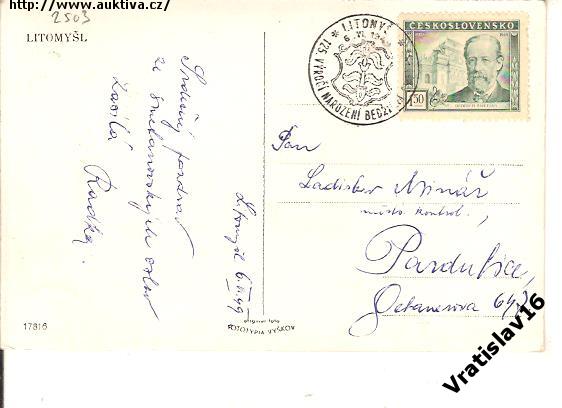 http://www.auktiva.cz
2503
LITOMYŠL
Srdečný pozdrav
ze smetanovských oslav
Zasílá
Radka.
Litomyšl 6.VI.49
17816
original foto
FOTOTYPIA VYŠKOV
LITOMYŠL
6.VI.1949
125. VÝROČÍ NAROZENÍ BEDŘ
ČESKOSLOVENSKO
1,50
BEDŘICH SMETANA
Pan
Ladislav Minář
kontrol.,
Pardubice,
642
Vratislav16